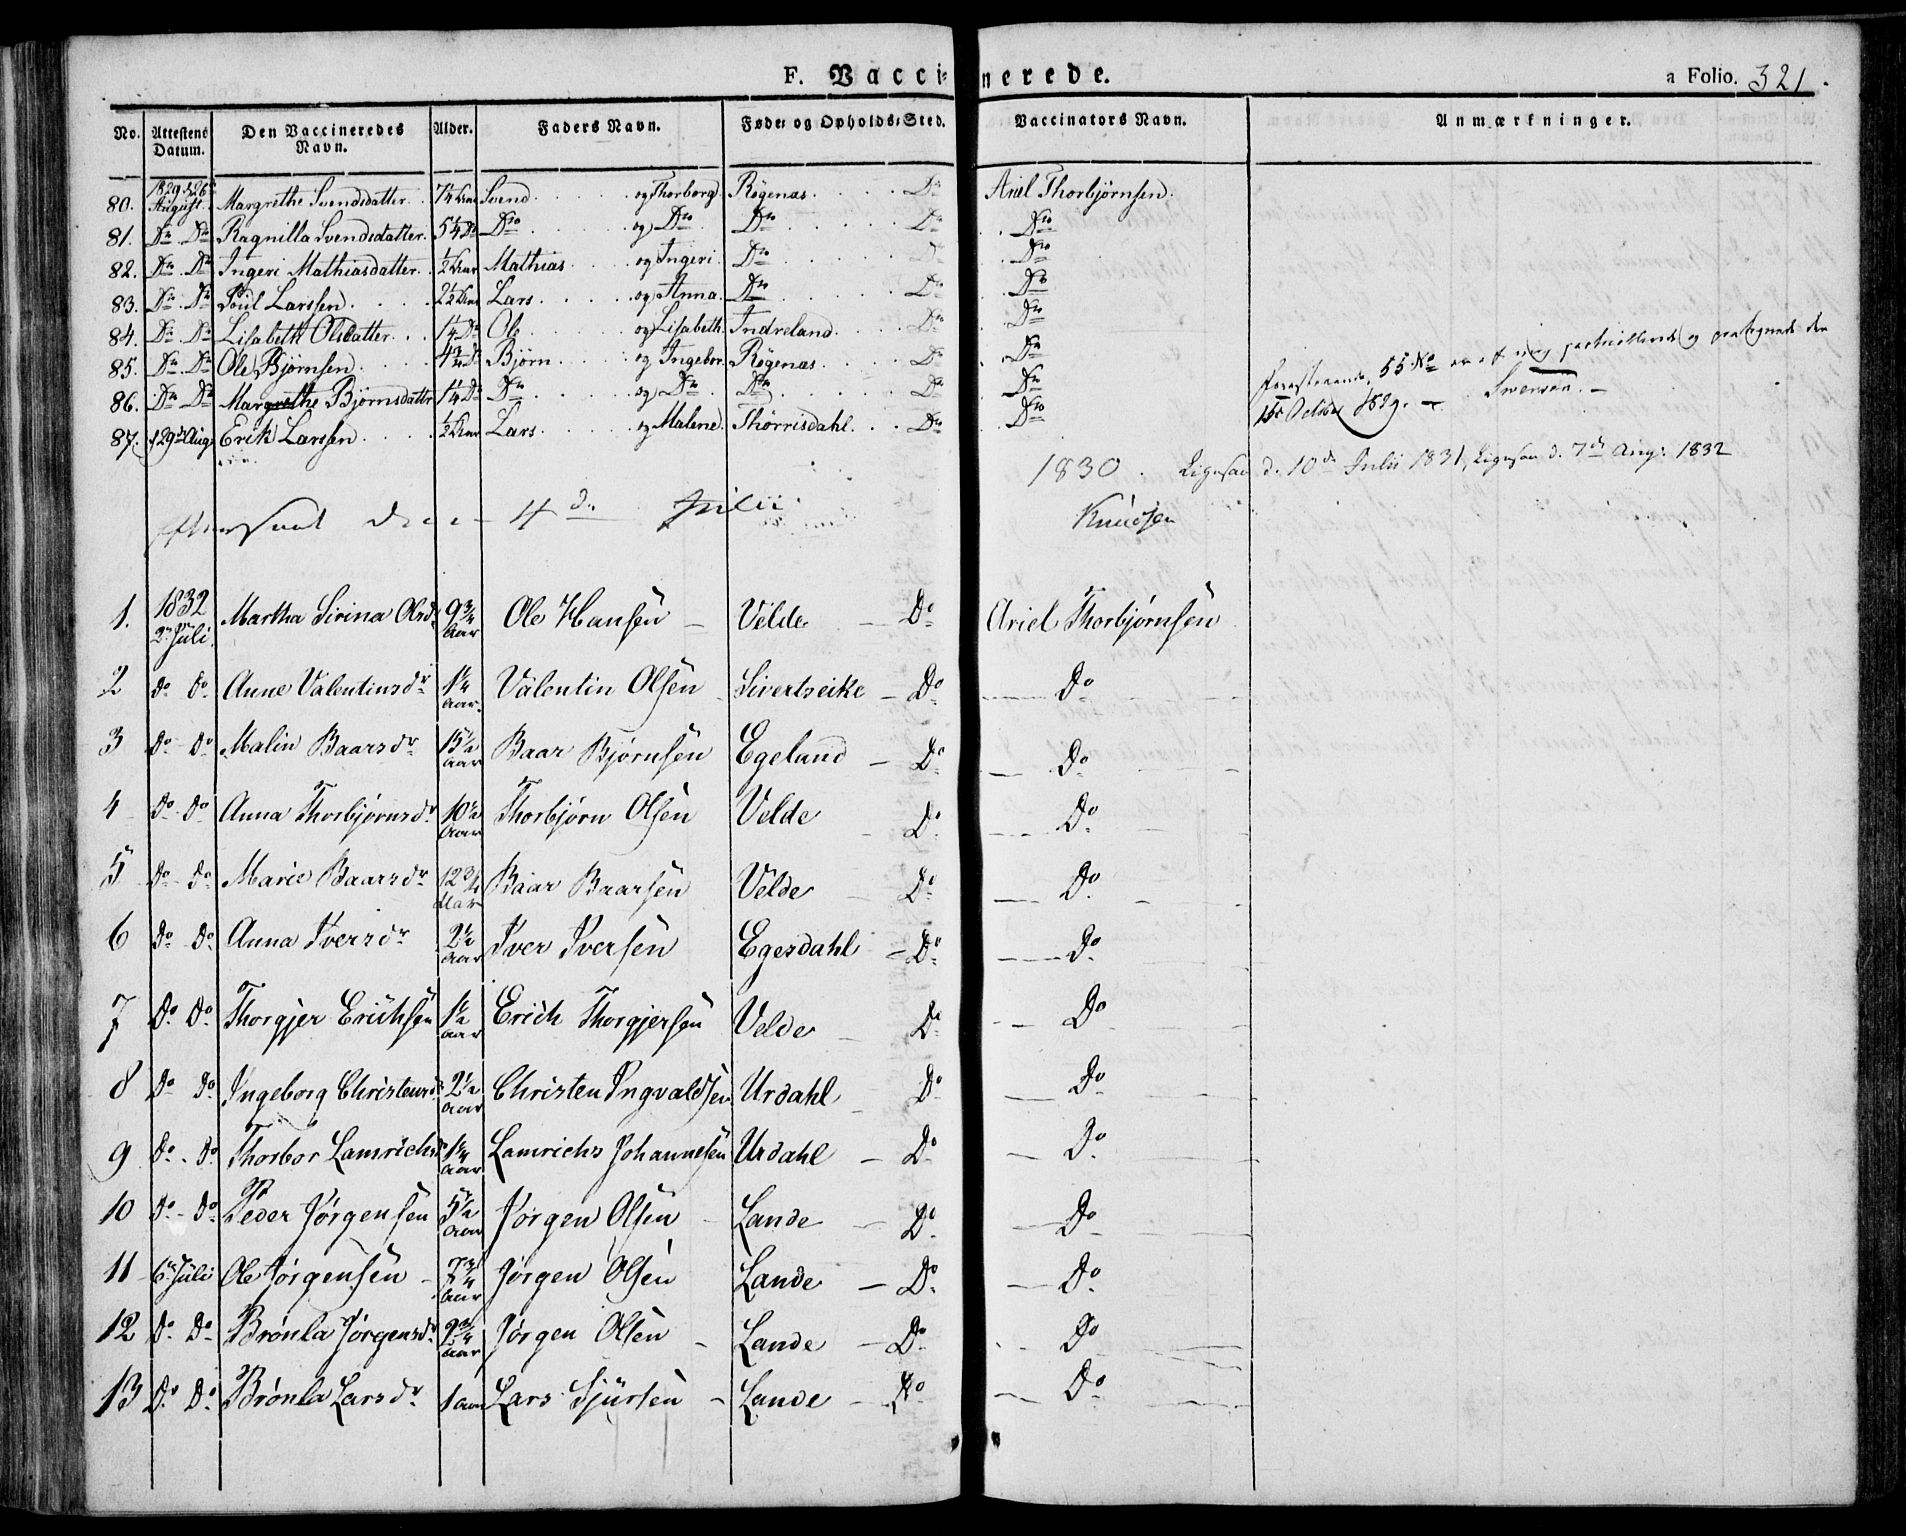 F. Vaccinerede. a Folio. 321.
No. Attestens Datum. Den Vaccineredes Navn. Alder. Faders Navn. Føde- og Opholds-Sted. Vaccinators Navn. Anmærkninger.
80. 1829 26 August Margrethe Svendsdatter. 7 1/4 Aar Svend og Thorborg. Røgenæs. Do Ariel Thorbjørnsen.
81. Do Do Ragnilla Svendsdatter. 5 1/4 Do Do og Do Do Do Do
82. Do Do Ingeri Mathiasdatter. 1/2 Aar Mathias og Ingeri. Do Do Do
83. Do Do Poul Larssen. 2 1/2 Aar Lars og Anna. Do Do Do
84. Do Do Lisabeth Olsdatter. 1/4 Do Ole og Lisabeth. Indreland. Do Do
85. Do Do Ole Bjørnsen. Bjørn og Ingebor. Røgenæs. Do Do
86. Do Do Margrethe Bjørnsdattr 1/4 Do Do og Do Do Do Do
87. 29de Aug Erik Larssen. 1/2 Aar Lars og Malene. Thorrisdahl. Do Do
Forestaaende 55 No er af mig og den
October 1829.
Efterseet d. 4de Julii 1830. Lignsaa d. 10de Julii 1831, Lignsaa d. 7de Aug: 1832
Knudsen
1. 1832 2n Juli. Martha Sirina Olsd. 9 3/4 Aar Ole Hansen Velde Do Ariel Thorbjørnsen
2 Do Do Anne Valentinsdr 1 1/4 Aar. Valentin Olsen Sivertseike Do Do
3 Do Do Malin Baarsdr 15 1/2 Aar Baar Bjørnsen Egeland Do Do
4 Do Do Anna Thorbjørnsdr 10 1/2 Aar Thorbjørn Olsen Velde Do Do
5 Do Do Marie Baarsdr Aar Baar Baarsen Velde Do Do
6 Do Do Anna Iversdr 2 1/2 Aar Iver Iversen Egesdahl Do Do
7 Do Do Thorgjer Erichsen 1 1/2 Aar Erich Thorgjersen Velde Do Do
8 Do Do Ingeborg Christensd 2 1/2 Aar Christen Ingvaldsen Urdahl Do Do
9 Do Do Thorbor Lamrichsd 1 1/4 Aar Lamrichs Johannesen Urdahl Do Do
10 Do Do Peder Jörgensen 5 1/2 Aar Jörgen Olsen Lande Do Do
11 6n Juli Ole Jörgensen 7 3/4 Aar Jörgen Olsen Lande Do Do
12 Do Do Brönla Jörgensdr 9 3/4 Aar Jörgen Olsen Lande Do Do
13 Do Do Brönla Larsdr 1 Aar Lars Sjursen Lande Do Do